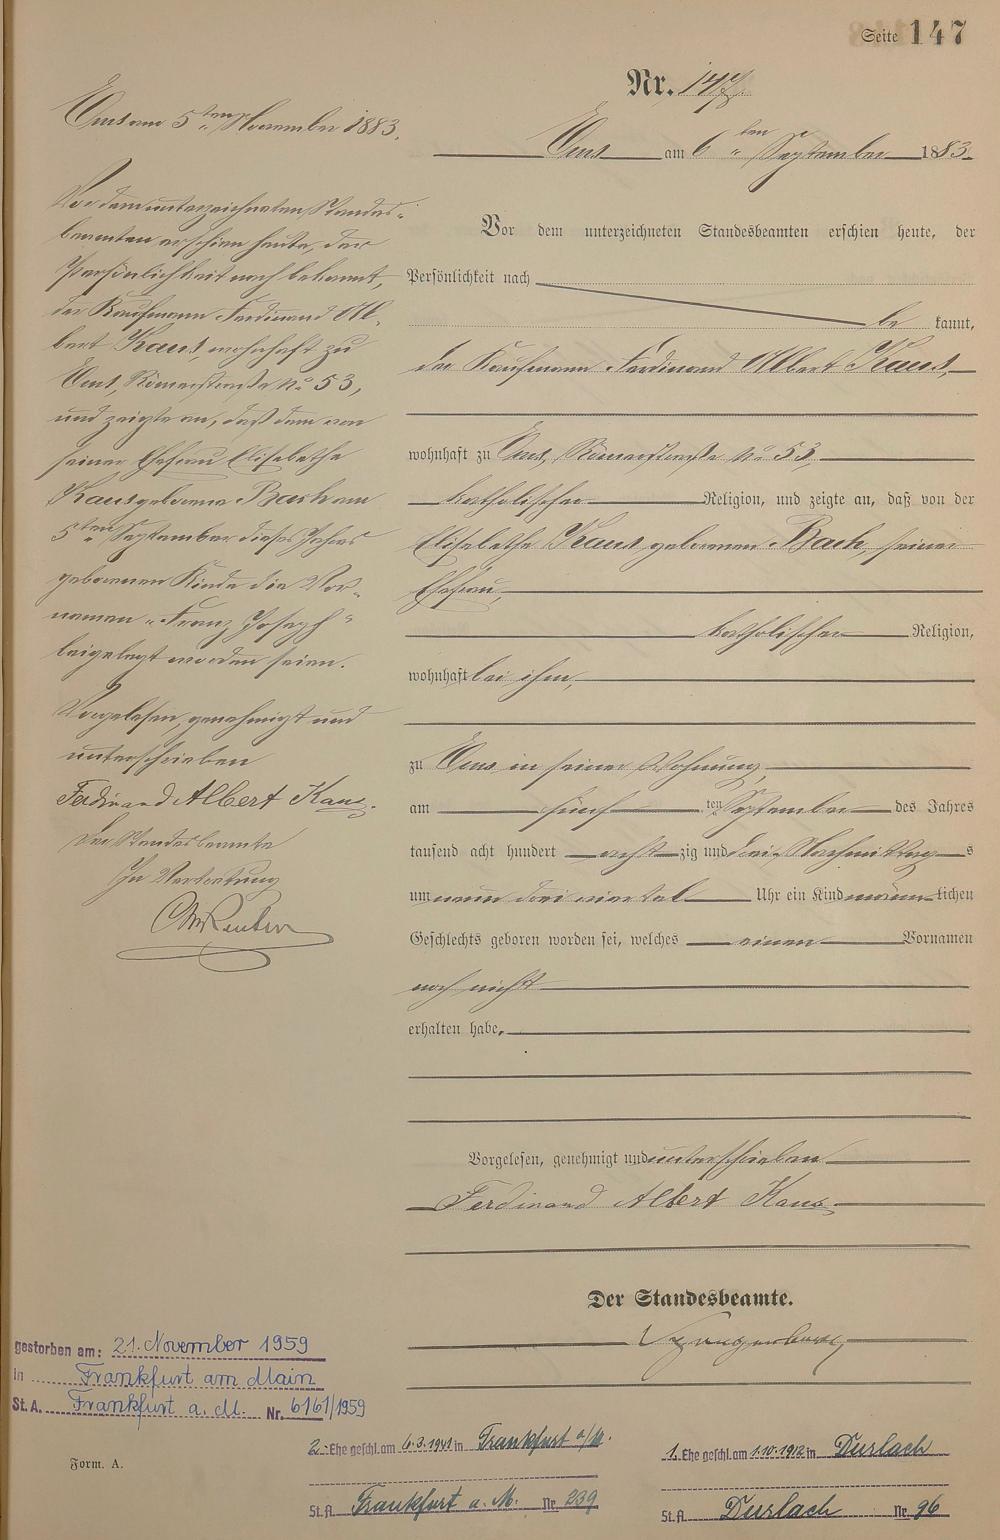 Seite 147
Nr. 147.
Ems am 6ten September 1883.
Vor dem unterzeichneten Standesbeamten erschien heute, der
Persönlichkeit nach
be kannt,
der Kaufmann Ferdinand Albert Kaus,
wohnhaft zu Ems, Römerstraße No 53,
katholischer Religion, und zeigte an, daß von der
Elisabethe Kaus geborenen Bach, seiner
Ehefrau,
katholischer Religion,
wohnhaft bei ihm,
zu Ems in seiner Wohnung,
am fünf ten September des Jahres
tausend acht hundert acht zig und drei Nachmittag s
um neun drei viertel Uhr ein Kind männ lichen
Geschlechts geboren worden sei, welches einen Vornamen
noch nicht
erhalten habe.
Vorgelesen, genehmigt und unterschrieben
Ferdinand Albert Kaus
Der Standesbeamte.
Ems am 5ten November 1883.
Vor dem unterzeichneten Standes-
beamten erschien heute, der
Persönlichkeit nach bekannt,
der Kaufmann Ferdinand Al-
bert Kaus, wohnhaft zu
Ems, Römerstraße No 53,
und zeigte an, daß dem von
seiner Ehefrau Elisabethe
Kaus geborene Bach am
5ten September dieses Jahres
geborenen Kinde die Vor-
namen „Franz Joseph"
beigelegt worden seien.
Vorgelesen, genehmigt und
unterschrieben
Ferdinand Albert Kaus.
Der Standesbeamte
In Vertretung
gestorben am: 21. November 1959
in Frankfurt am Main
St. A. Frankfurt a. M. Nr. 6161/1959
Form. A.
2. Ehe geschl. am 6.3.1941 in Frankfurt a/M.
St. A. Frankfurt a. M. Nr. 239
1. Ehe geschl. am 1.10.1912 in Durlach
St. A. Durlach Nr. 96